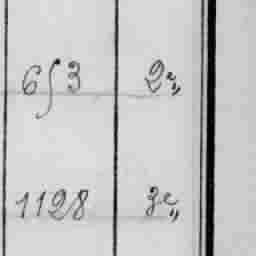 653 2e„
1128 3e„